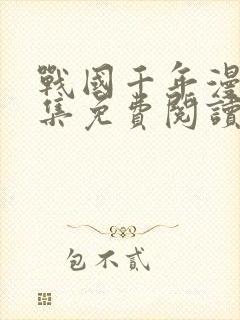 戰國千年漫
集免費閱讀
包不貳